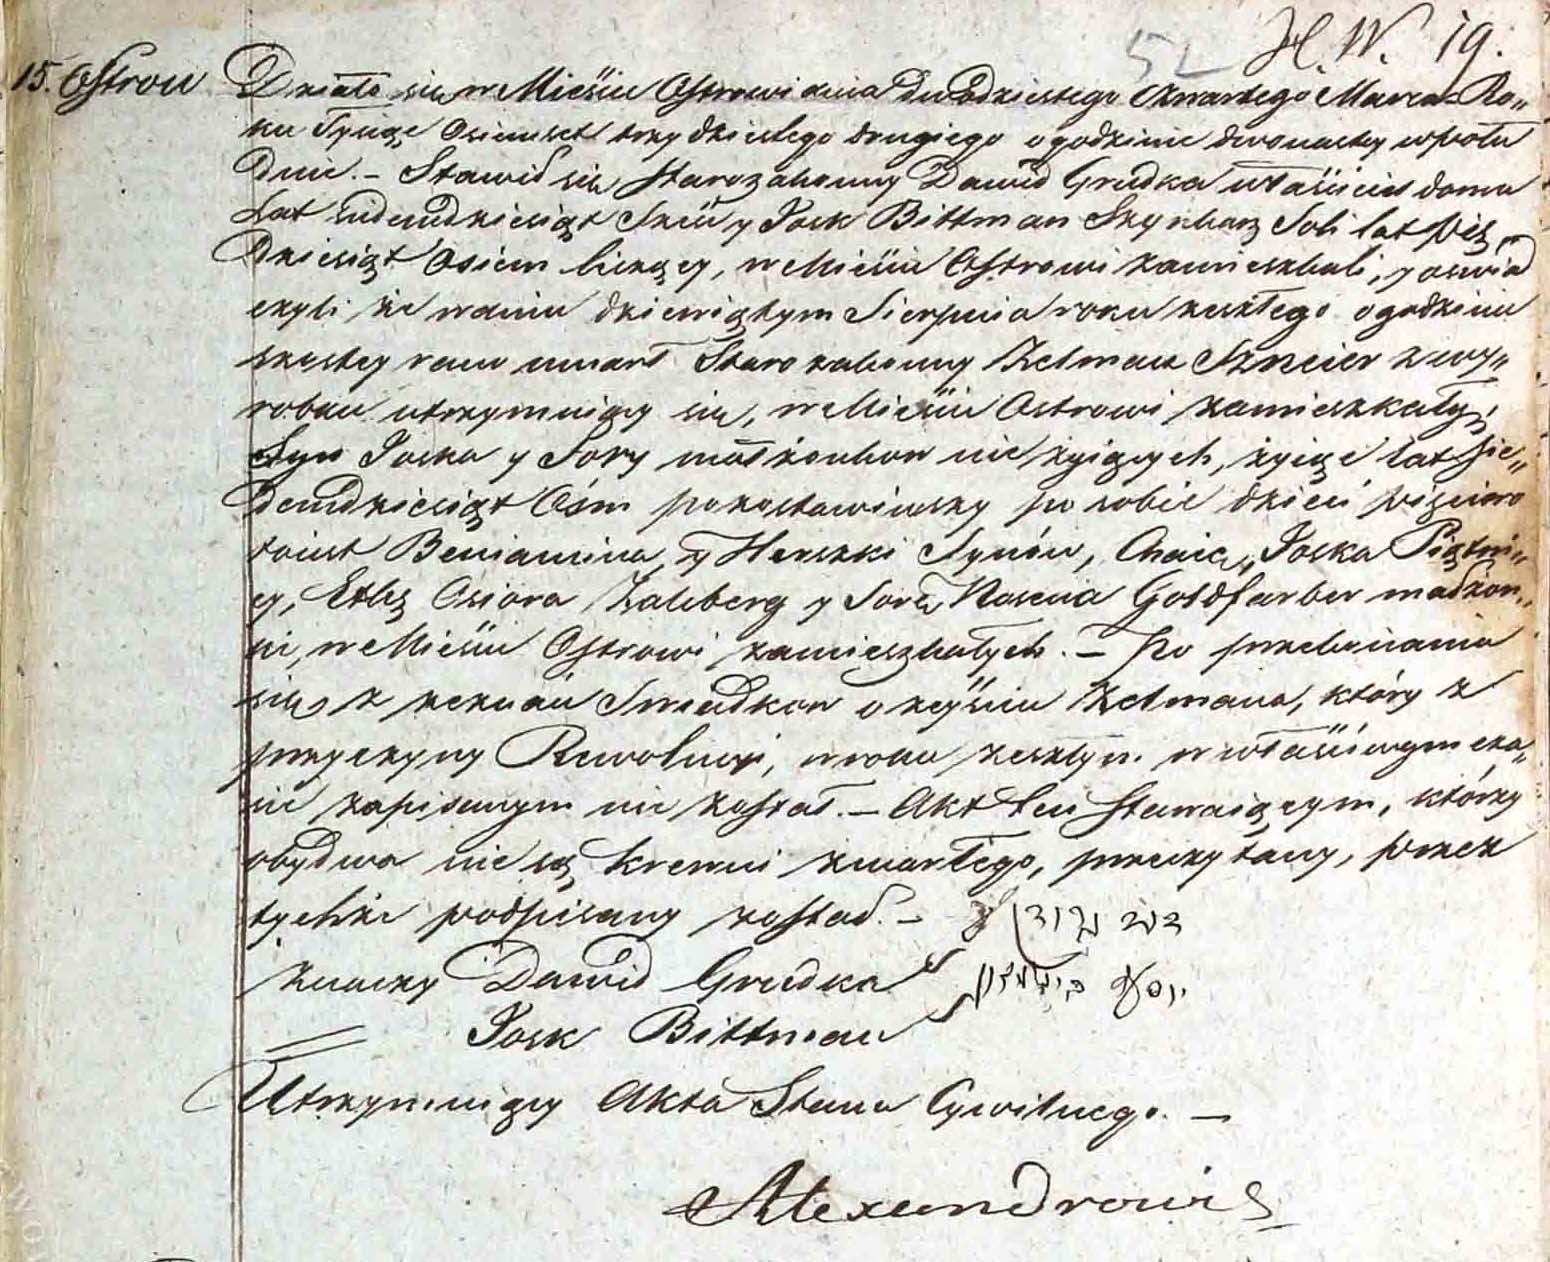 52 H. W. 19.
15. Ostrow Działo się w Mieście Ostrowi dnia dwódziestego czwartego Marca Ro„
ku Tysiąc Osiemset trzydziestego drugiego o godzinie dwonastey w połu
dnie. – Stawił się Starozakonny Dawid Grudka właściciel domu
Lat siedemdziesiąt sześć y Josk Bittman Szynkarz Soli lat pięć„
dziesiąt Osiem liczący, w Mieście Ostrowi zamieszkali, y oswiad
czyli że w dniu dziewiątym Sierpnia roku zeszłego o godzinie
szostey rano umarł Starozakonny Zelman Szneier z wy„
robku utrzymuiący się, w Mieście Ostrowi zamieszkały,
Syn Joska y Sory małżonkow nie żyiących, żyiąc lat sie„
demdziesiąt Ośm pozostawiwszy po sobie dzieci pięcioro
to iest Beniamina, y Herszki Synów, Chaię, Joska Piątni„
cy, Etkę Osiora Zalcberg y Sorę Nosena Goldfarber małżon„
ki, w Mieście Ostrowi zamieszkałych. – Po przekonaniu
się z zeznań Swiadkow o zeyściu Zelmana, który z
przyczyny Rewolucyi, w roku zeszłym w właściwym cza„
sie zapisanym nie został. – Akt ten stawaiącym, którzy
obydwa nie są krewni zmarłego, przeczytany, przez
tychże podpisany został. – דוד גרודקא
znaczy Dawid Grudka יוסף ביטמאן
Josk Bittman
Utrzymuiący Akta Stanu Cywilnego. –
Alexandrowicz